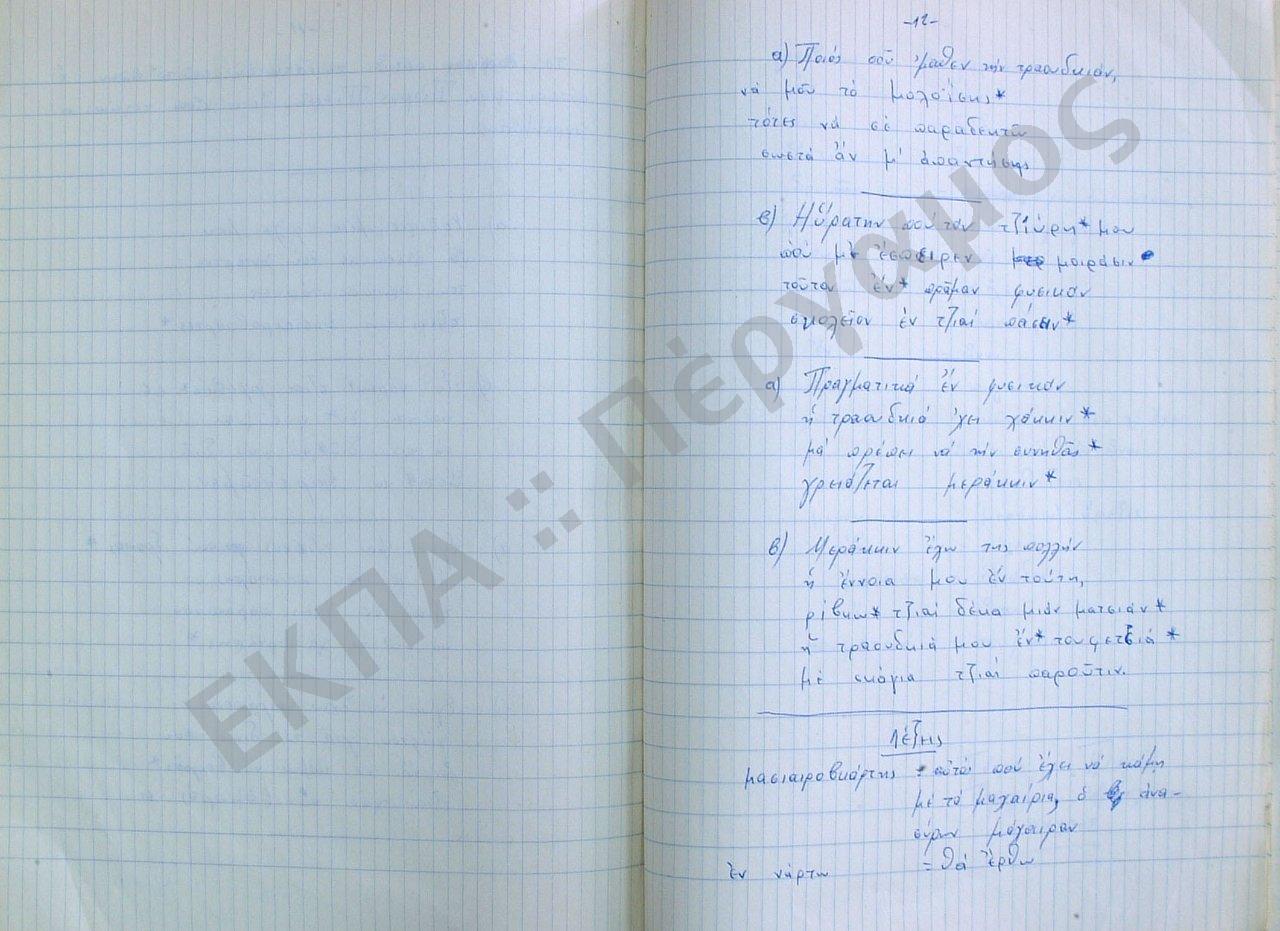 -12-
α) Ποιός σοῦ 'μαθεν τήν τραουδκιάν,
νά μοῦ τό μολοΐσης*
τότες νά σέ παραδεκτῶ
σωστά ἄν μ' ἀπαντήσης
β) Ηὕρατην πού τόν τζιύρη* μου
πού μέ ἔσπειρεν μοιράσιν
τοῦτον ἔν* πρᾶμαν φυσικόν
σχολεῖον ἐν τζιαί πάσιν*
α) Πραγματικά ἔν φυσικόν
ἡ τραουδκιά ἔχει χάκκιν*
μά πρέπει νά τήν συνηθᾶς*
χρειάζεται μεράκκιν*
β) Μεράκκιν ἔχω της πολλήν
ἡ ἔννοια μου ἔν τούτη,
ρίβκω* τζιαί δέκα μιάν ματσιάν*
ἡ τραουδκιά μου ἔν* τουφετζιά*
μέ σκάγια τζιαί παρούτιν.
Λέξης
μασιαιροβκάρτης = αὐτός πού ἔχει νά κάμη
μέ τά μαχαίρια, ὁ ἀνα-
σύρων μάχαιραν
ἐν νάρτω = θά ἔρθω
ΕΚΠΑ :: Πέργαμος